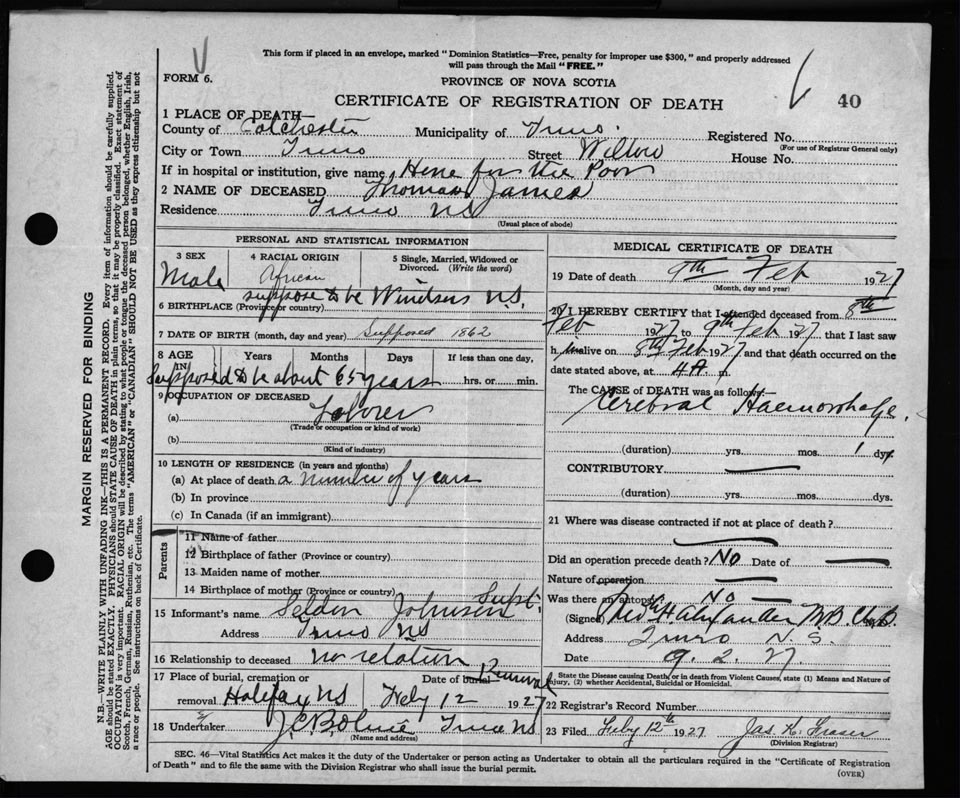 This form if placed in an envelope, marked "Dominion Statistics—Free, penalty for improper use $300," and properly addressed
will pass through the Mail "FREE."
FORM 6.
PROVINCE OF NOVA SCOTIA
CERTIFICATE OF REGISTRATION OF DEATH
40
1 PLACE OF DEATH—
County of Colchester Municipality of Truro. Registered No.
(For use of Registrar General only)
City or Town Truro Street Willow House No.
If in hospital or institution, give name, Home for the Poor
2 NAME OF DECEASED Thomas James
Residence Truro NS
(Usual place of abode)
PERSONAL AND STATISTICAL INFORMATION
3 SEX 4 RACIAL ORIGIN 5 Single, Married, Widowed or
Divorced. (Write the word)
Male African
suppose to be Windsor N.S.
6 BIRTHPLACE (Province or country)
7 DATE OF BIRTH (month, day and year) Supposed 1862
8 AGE IN Years Months Days If less than one day,
hrs. or min.
Supposed to be about 65 years
9 OCCUPATION OF DECEASED
(a) Laborer
(Trade or occupation or kind of work)
(b)
(Kind of industry)
10 LENGTH OF RESIDENCE (in years and months)
(a) At place of death a number of years
(b) In province
(c) In Canada (if an immigrant)
Parents
11 Name of father
12 Birthplace of father (Province or country)
13 Maiden name of mother
14 Birthplace of mother (Province or country)
15 Informant's name Seldon Johnson Supt.
Address Truro NS
16 Relationship to deceased no relation
17 Place of burial, cremation or Date of burial Removal
removal Halifax NS Feby 12 1927
18 Undertaker Truro NS
(Name and address)
MEDICAL CERTIFICATE OF DEATH
19 Date of death 9th Feb 1927
(Month, day and year)
20 I HEREBY CERTIFY that I attended deceased from 8th
Feb 1927 to 9th Feb 1927 that I last saw
h im alive on 8th Feb 1927 and that death occurred on the
date stated above, at 4 A. m.
The CAUSE of DEATH was as follows:
Cerebral Haemorrhage.
(duration) yrs. mos. 1 dys.
CONTRIBUTORY
(duration) yrs. mos. dys.
21 Where was disease contracted if not at place of death?
Did an operation precede death? No Date of
Nature of operation
Was there an autopsy No
(Signed) M.B. Ch.B.
Address Truro N.S.
Date 9.2.27.
State the Disease causing Death, or in death from Violent Causes, state (1) Means and Nature of
Injury, (2) whether Accidental, Suicidal or Homicidal.
22 Registrar's Record Number
23 Filed Feby 12th 1927 Jas. K. Fraser
(Division Registrar)
SEC. 46—Vital Statistics Act makes it the duty of the Undertaker or person acting as Undertaker to obtain all the particulars required in the "Certificate of Registration
of Death" and to file the same with the Division Registrar who shall issue the burial permit.
(OVER)
MARGIN RESERVED FOR BINDING
N.B.—WRITE PLAINLY WITH UNFADING INK—THIS IS A PERMANENT RECORD. Every item of information should be carefully supplied.
AGE should be stated EXACTLY. PHYSICIANS should STATE CAUSE OF DEATH in plain terms, so that it may be properly classified. Exact statement of
OCCUPATION is very important. RACIAL ORIGIN will be described by stating to what people or tongue the deceased person belonged, whether English, Irish,
Scotch, French, German, Russian, Ruthenian, etc. The terms "AMERICAN" or "CANADIAN" SHOULD NOT BE USED as they express citizenship but not
a race or people. See instructions on back of Certificate.